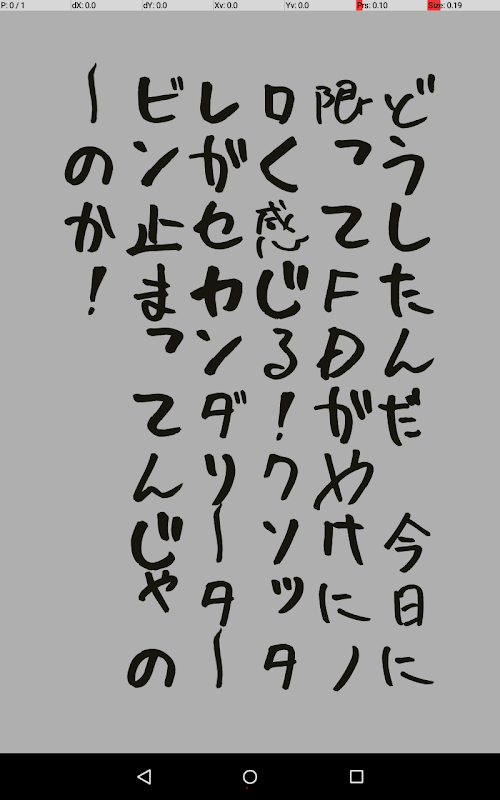 P: 0 / 1 dX: 0.0 dY: 0.0 Xv: 0.0 Yv: 0.0 Prs: 0.10 Size: 0.19
どうしたんだ　今日に
限ってFDがやけにノ
ロく感じる!クソッタ
レがセカンダリーター
ビン止まってんじゃの
ーのか!